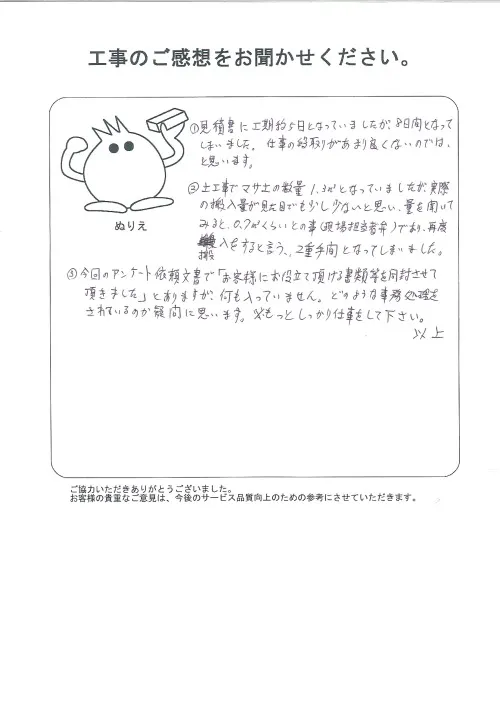 工事のご感想をお聞かせください。
①見積書に工期約5日となっていましたが、8日間となって
しまいました。仕事の段取りがあまり良くないのでは、
と思います。
②土工事でマサ土の数量1.3㎥となっていましたが実際
の搬入量が見た目でも少し少ないと思い、量を聞いて
みると、0.7㎥くらいとの事(現場担当者弁)であり、再度
搬入をすると言う、2重手間となってしまいました。
ぬりえ
③今回のアンケート依頼文書で「お客様にお役立て頂ける書類等を同封させて
頂きました」とありますが、何も入っていません。どのような事務処理を
されているのか疑問に思います。もっとしっかり仕事をして下さい。
以上
ご協力いただきありがとうございました。
お客様の貴重なご意見は、今後のサービス品質向上のための参考にさせていただきます。